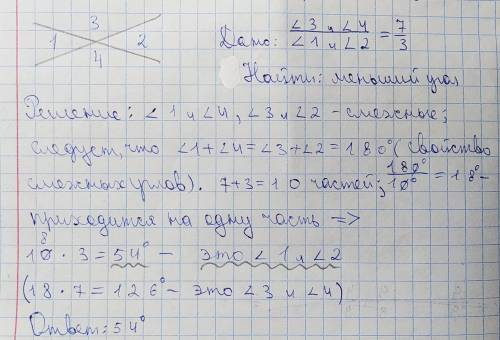 3
1 2
4
Дано: ∠3 и ∠4 / ∠1 и ∠2 = 7/3
Найти: меньший угол
Решение: ∠1 и ∠4, ∠3 и ∠2 - смежные;
следует, что ∠1+∠4=∠3+∠2=180° (свойство
смежных углов). 7+3=10 частей; 180°/10° = 18° -
приходится на одну часть =>
18 · 3 = 54° - это ∠1 и ∠2
(18 · 7 = 126° - это ∠3 и ∠4)
Ответ: 54°